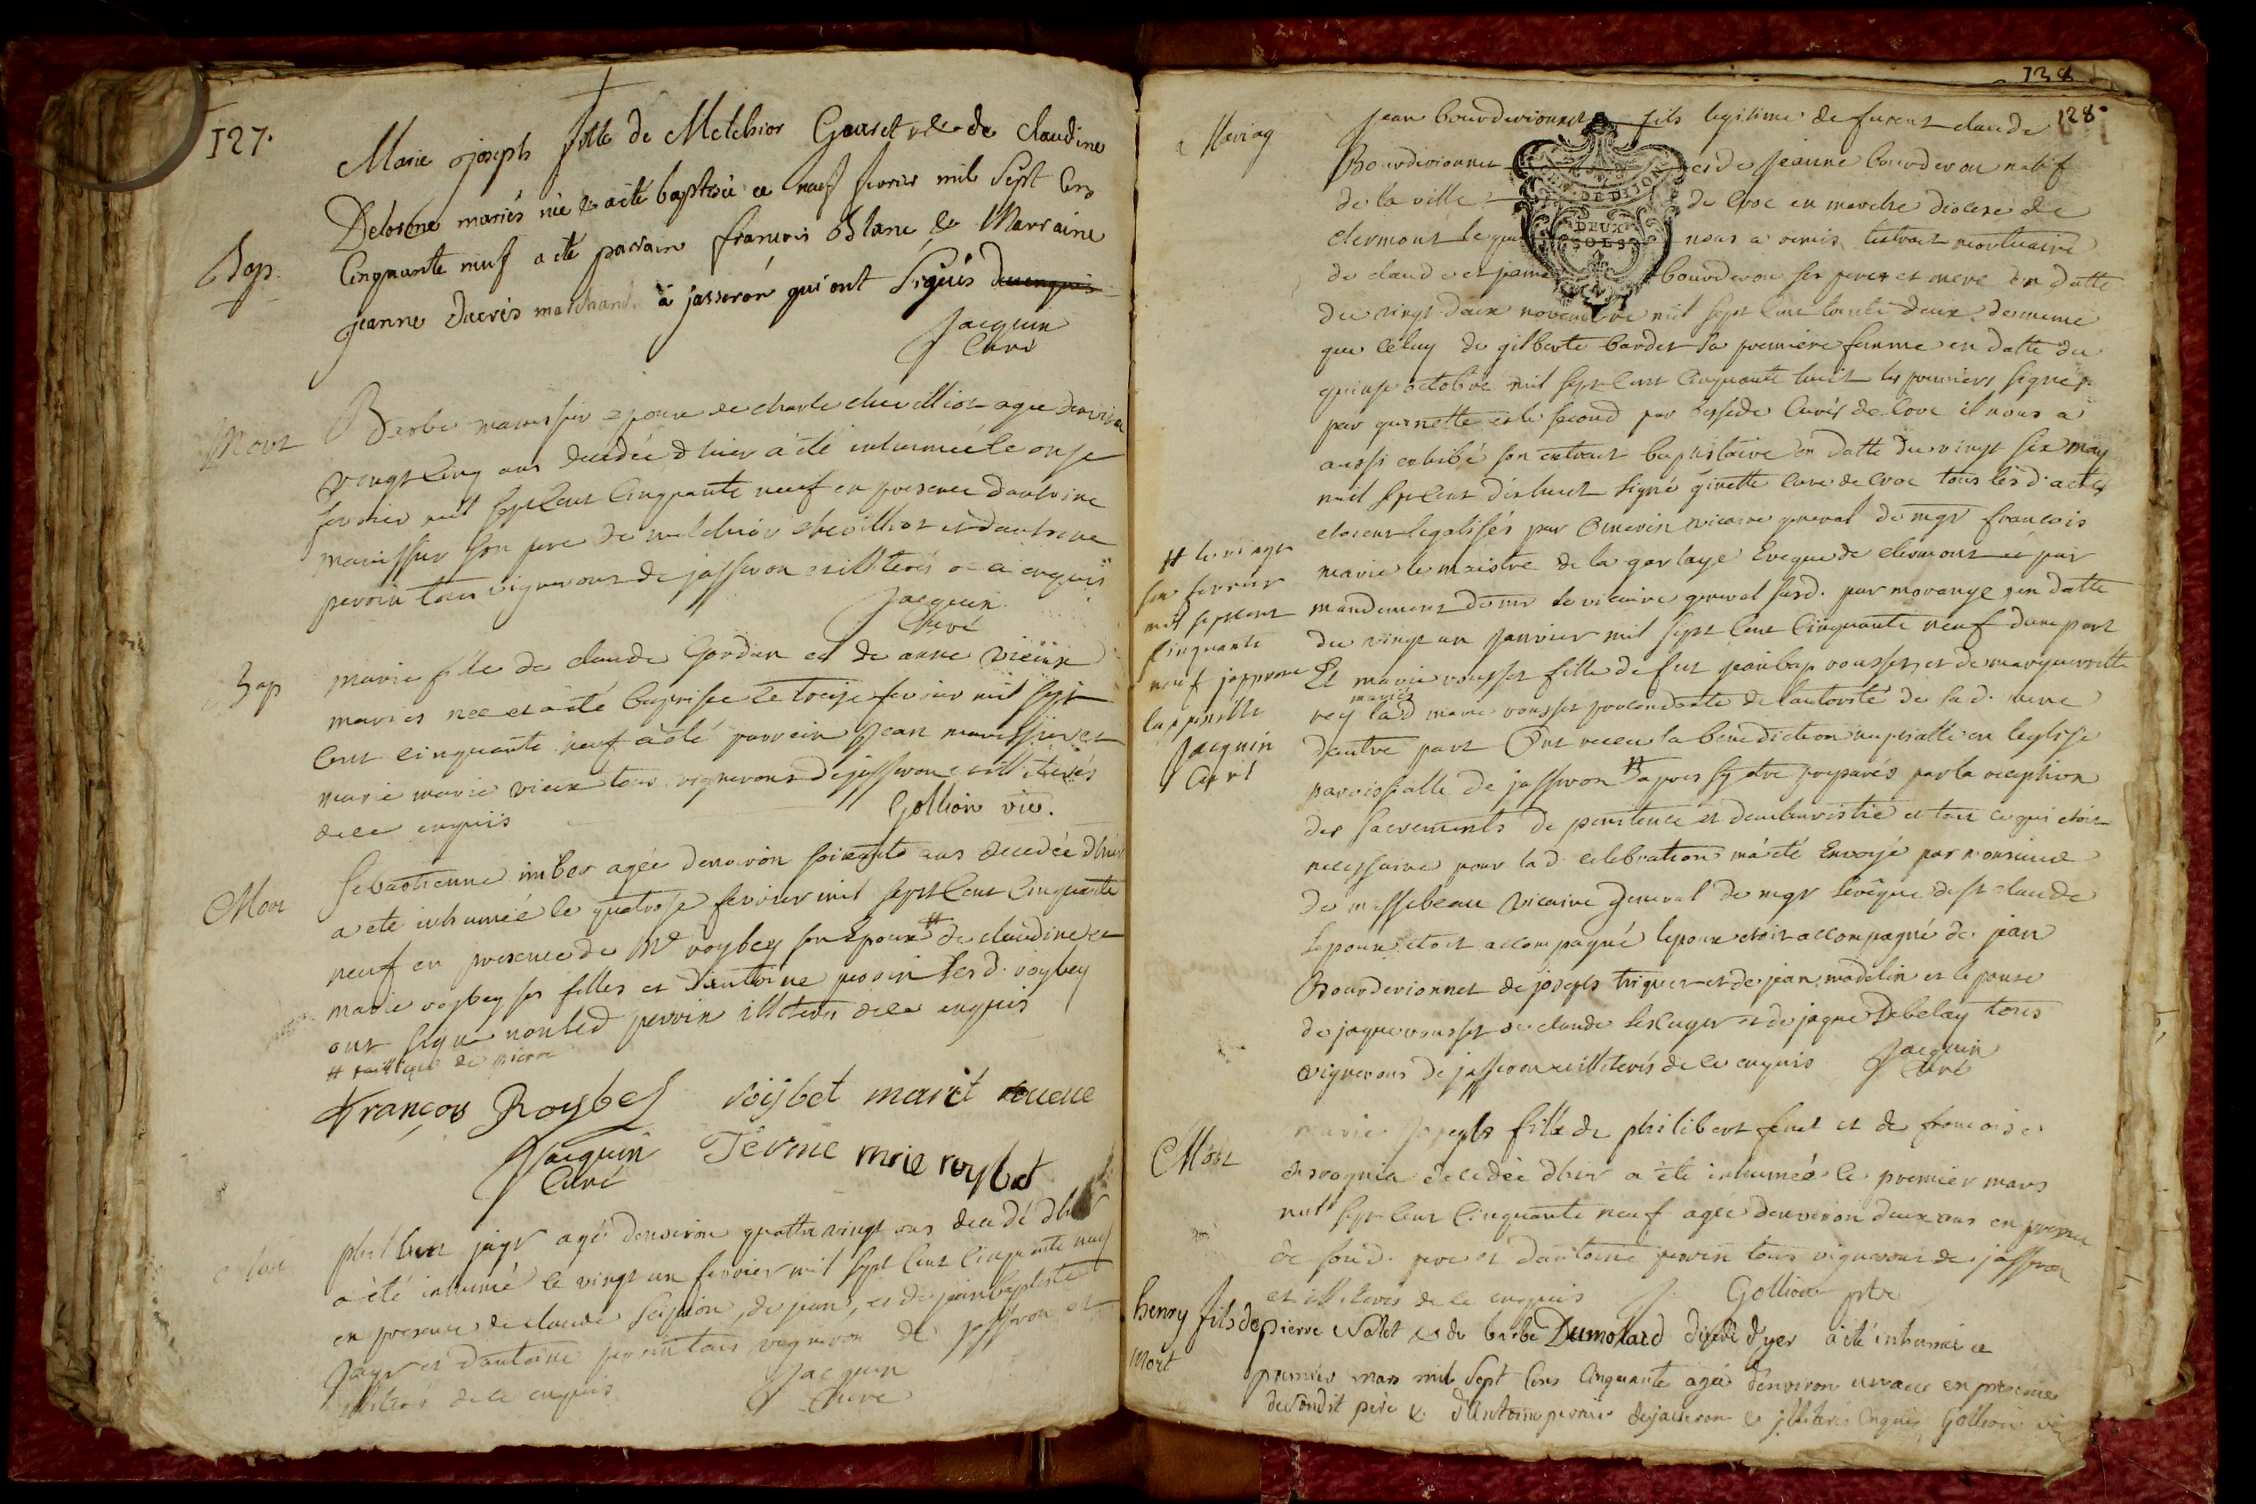 127.
Marie joseph fille de Melchior Gouret et de claudine
Delorme mariés née et a été baptisée ce neuf fevrier mil Sept Cens
Bap.
Cinquante neuf a été parrain francois Blanc et Marraine
jeanne Ducrés marchand à jasseron qui ont Signés de ce enquis
Jacquin
Curé
Mort
Barbe manissier epouse de charle chevillot agée denviron
vingt cinq ans decedée d'hier a été inhumée le onze
fevrier mil sept cent cinquante neuf en presence dantoine
manissier son pere de melchior chevilliot et dantoine
perrin tous vignerons de jasseron et illiterés de ce enquis
Jacquin
Curé
Bap
marie fille de claude Gordan et de anne vieux
mariés née et a été baptisée le treize fevrier mil sept
cent cinquante neuf a été parrein jean manissier et
marie marie vieux tous vignerons de jasseron et illiterés
de ce enquis
Gollion vic.
Mort
Sebastienne imber agée denviron soixante ans decedée d'hier
a été inhumée le quatorze fevrier mil sept cent cinquante
neuf en presence de Mr roybey son epoux # de claudine et
marie roybey ses filles et dantoine perrin les d. roybey
ont signé non led perrin illiteré de ce enquis
# tailleur de pierre
François Roybet roijbet mariet
Jacquin
Curé
Terme marie roybet
Mort
philibert jayr agé denviron quattre vingt ans decedé d'hier
a été inhumé le vingt un fevrier mil sept cent cinquante neuf
en presence de claude Scipion, de jean, et de jeanbaptiste
jayr et dantoine perrin tous vigneron de jasseron et
illiterés de ce enquis
Jacquin
Curé
128
128.
Mariag
jean bourderionnet fils legitime de furent claude
Bourderionnet et de jeanne bourderou natif
de la ville de Croc en marche diocese de
clermont lequel nous a remis lextrait mortuaire
de claude et jeanne bourderou ses pere et mere en datte
DE DIJON
DEUX
SOLS
du vingt deux novembre mil sept cent trente deux de meme
que celuy de gilberte bardet sa premiere femme en datte du
quinze octobre mil sept cent cinquante huit les premiers signés
par quinette et le second par curés de Croc il nous a
aussi exhibé son extrait baptistaire en datte du vingt six may
mil sept cent dixhuit signé ginette curé de croc tous les d. actes
etoient legalisés par Omerin vicaire general de mgr francois
marie le maistre de la garlaye Eveque de clermont et par
mandement dems le vicaire general susd. par morange en datte
du vingt un janvier mil sept cent cinquante neuf dune part
Et marie rousset fille de feu jeanbap rousset, et de marguerite
rey mariés lad marie rousset procendante de lautorité de sad. mere
dautre part Ont receu la benediction nuptialle en leglise
parroissialle de jasseron # apres sy etre preparés par la reception
des sacrements de penitence et deucharistie et tout ce qui etoit
necessaire pour lad. celebration m'a été Envoyé par monsieur
de massebeau vicaire general de mgr leveque de st claude
lepoux etoit accompagné lepoux etoit accompagné de jean
Bourderionnet de joseph triquet et de jean madelin et lepouse
de jaque rousset de claude et de jaque Debelay tous
vignerons de jasseron et illiterés de ce enquis
Jacquin
Curé
# le vingt
six fevrier
mil sept cent
cinquante
neuf japprouve
lappostille
Jacquin
Curé
Mort
marie joseph fille de philibert feuet et de francoise
decedée d'hier a été inhumée le premier mars
mil sept cent cinquante neuf agée denviron deux ans en presence
de sond. pere et dantoine perrin tous vignerons de jasseron
et illiterés de ce enquis
Gollion ptre
henry fils de pierre Valet et de barbe Dumolard d'hyer a été inhumé ce
Mort
premier mars mil sept cens cinquante agée denviron en presence
dudit pere et d'Antoine perrin de jasseron et illiterés enquis Gollion vic